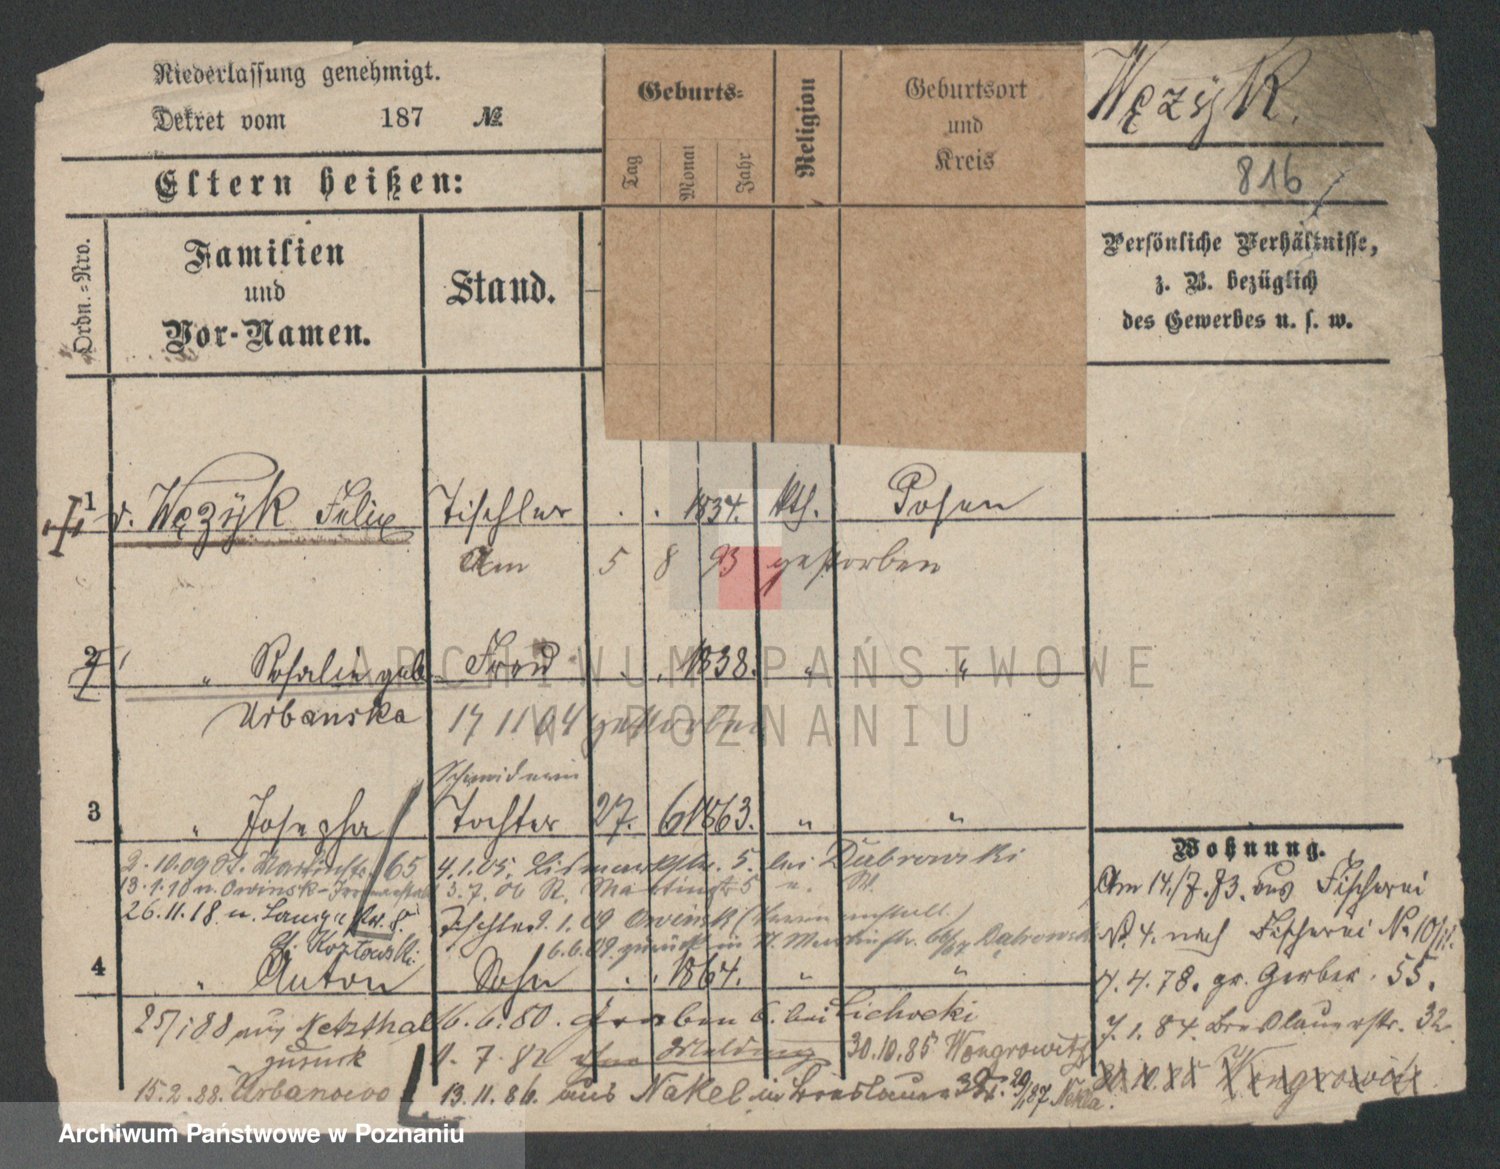 Niederlassung genehmigt.
Dekret vom 187 №
Eltern heißen:
Ordn.=Nro.
Familien
und
Vor-Namen.
Stand.
Geburts=
Tag
Monat
Jahr
Religion
Geburtsort
und
Kreis
Wężyk.
816
Persönliche Verhältnisse,
z. B. bezüglich
des Gewerbes u. s. w.
1 v. Wężyk Felix Tischler . . 1834. kth. Posen
Am 5 8 93 gestorben
2 " Rosalie geb. Frau . . 1838. " "
Urbanska 17 11 04 gestorben
Schneiderin
3 " Josepha Tochter 27. 6 1863. " "
2.10.09 St. Martinstr. 65 4.1.05. 5. bei Dubrowski
13.1.10 n. 3.7.06 St. Martinstr. 5
26.11.18 n. Lange str. 8. Tischler 2.1.09
b. Kozlowski 6.6.09. zurück in St. Martinstr.
4 " Anton Sohn . . 1864. " "
25/1 88 aus Netzthal 16.6.80. Graben 6. bei Cichocki
zurück 1.7.82 ohne Meldung 30.10.85 Wongrowitz
15.2.88. Urbanowo 13.11.86. aus Nakel in Breslauer 32. 29/1.87 Nekla.
Wohnung.
Am 14./7.73. aus Fischerei
No. 4. nach Fischerei No 10/11.
4.4.78. gr. Gerber. 55.
7.1.84. Breslauerstr. 32.
30.10.85 Wongrowitz
ARCHIWUM PAŃSTWOWE
W POZNANIU
Archiwum Państwowe w Poznaniu